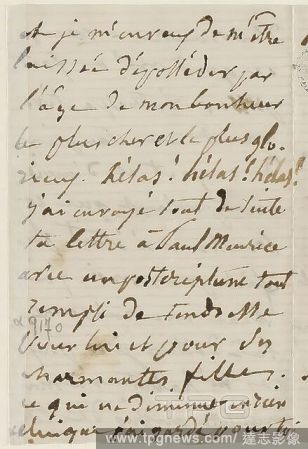 et je m'en veux de m'être
laissée déposséder par
l'âge de mon bonheur
le plus cher et le plus glo-
rieux. hélas! hélas! hélas!
j'ai envoyé tout de suite
ta lettre à Paul Meurice
avec un postscriptum tout
rempli de tendresse
pour lui et pour ses
charmantes filles.
ce qui ne diminue en rien
celui que j'ai gardé pour toi
α 9170
www.tpgnews.com/達志影像